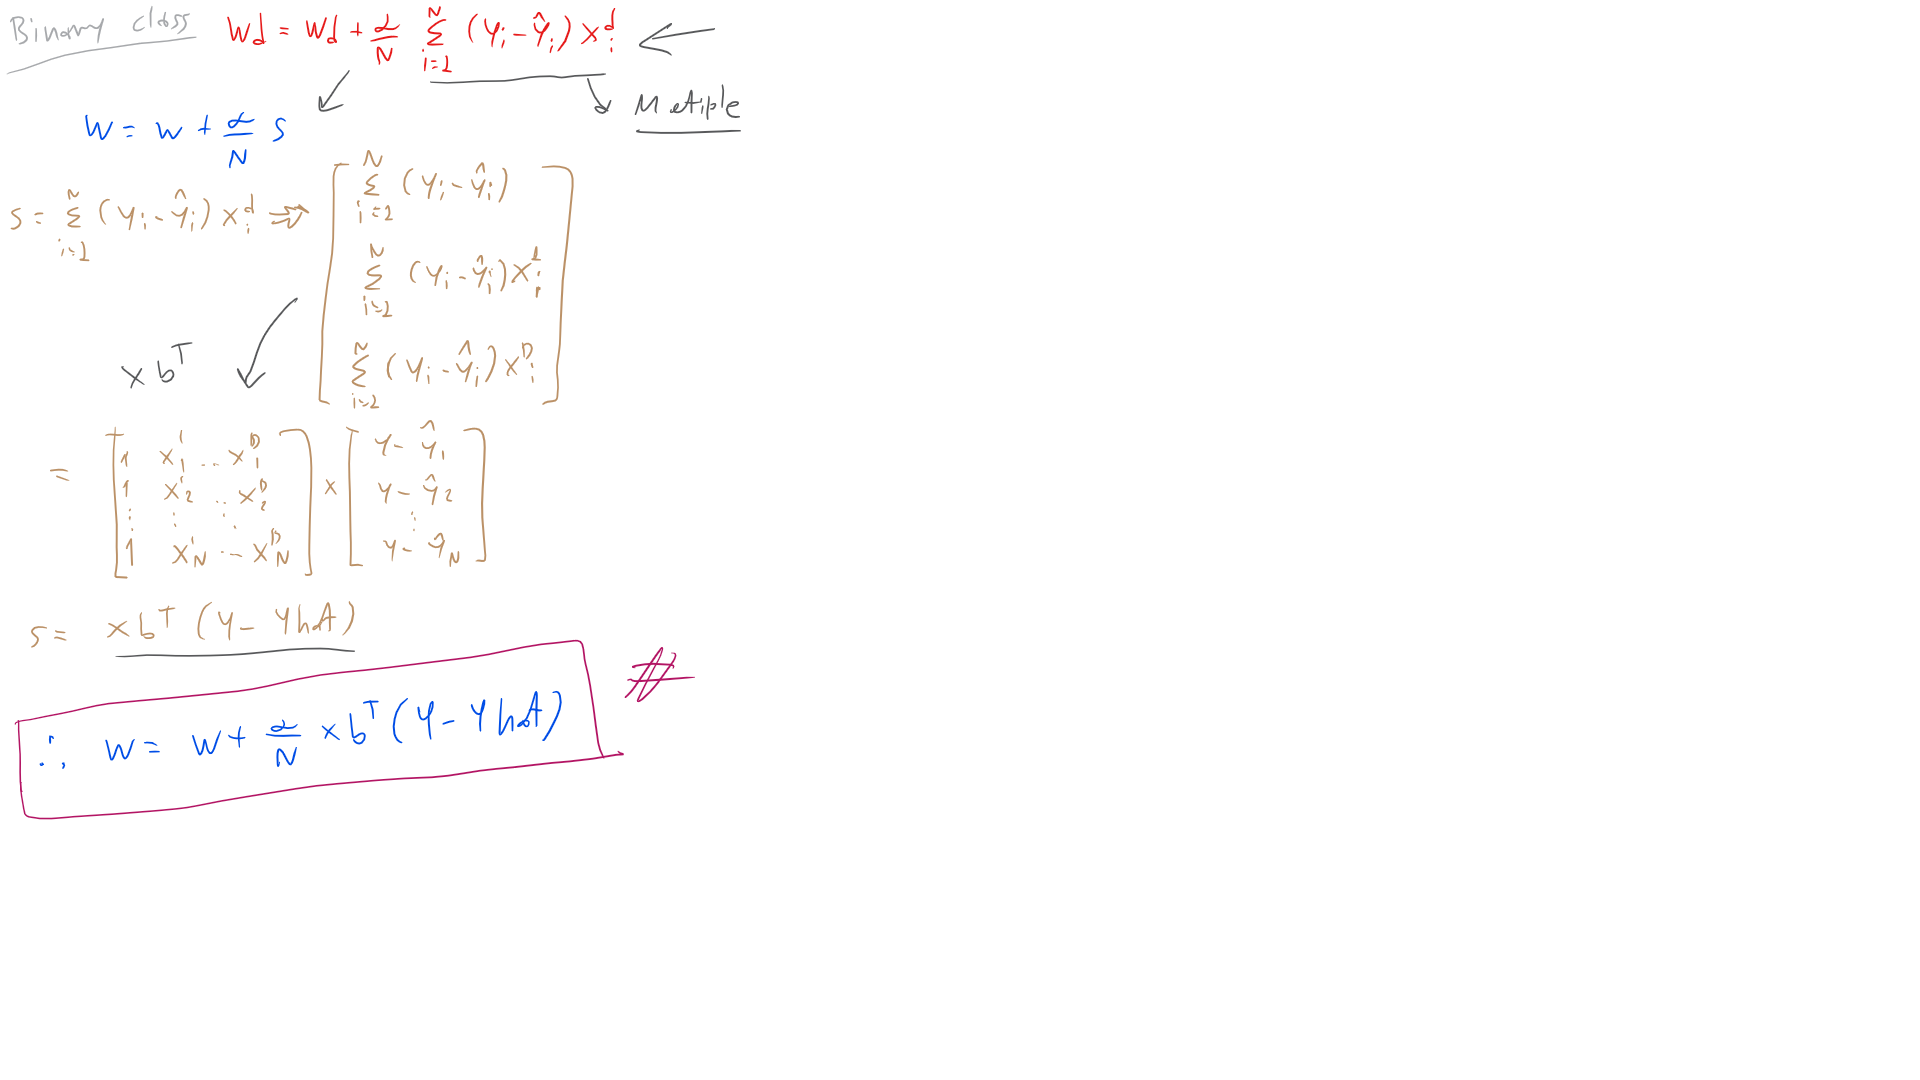 Binary class
Wd = Wd + α/N Σ_{i=1}^{N} (Yi - Ŷi) X_i^d
Metiple
W = W + α/N S
S = Σ_{i=1}^{N} (Yi - Ŷi) X_i^d ⇒
Σ_{i=1}^{N} (Yi - Ŷi)
Σ_{i=1}^{N} (Yi - Ŷi) X_i^1
Σ_{i=1}^{N} (Yi - Ŷi) X_i^D
Xb^T
= [1 X_1^1 ... X_1^D] × [Y - Ŷ1]
1 X_2^1 .. X_2^D Y - Ŷ2
⋮ ⋮ ⋮ ⋮
1 X_N^1 ... X_N^D Y - ŶN
S = Xb^T (Y - Yhat)
∴ W = W + α/N Xb^T (Y - Yhat) #